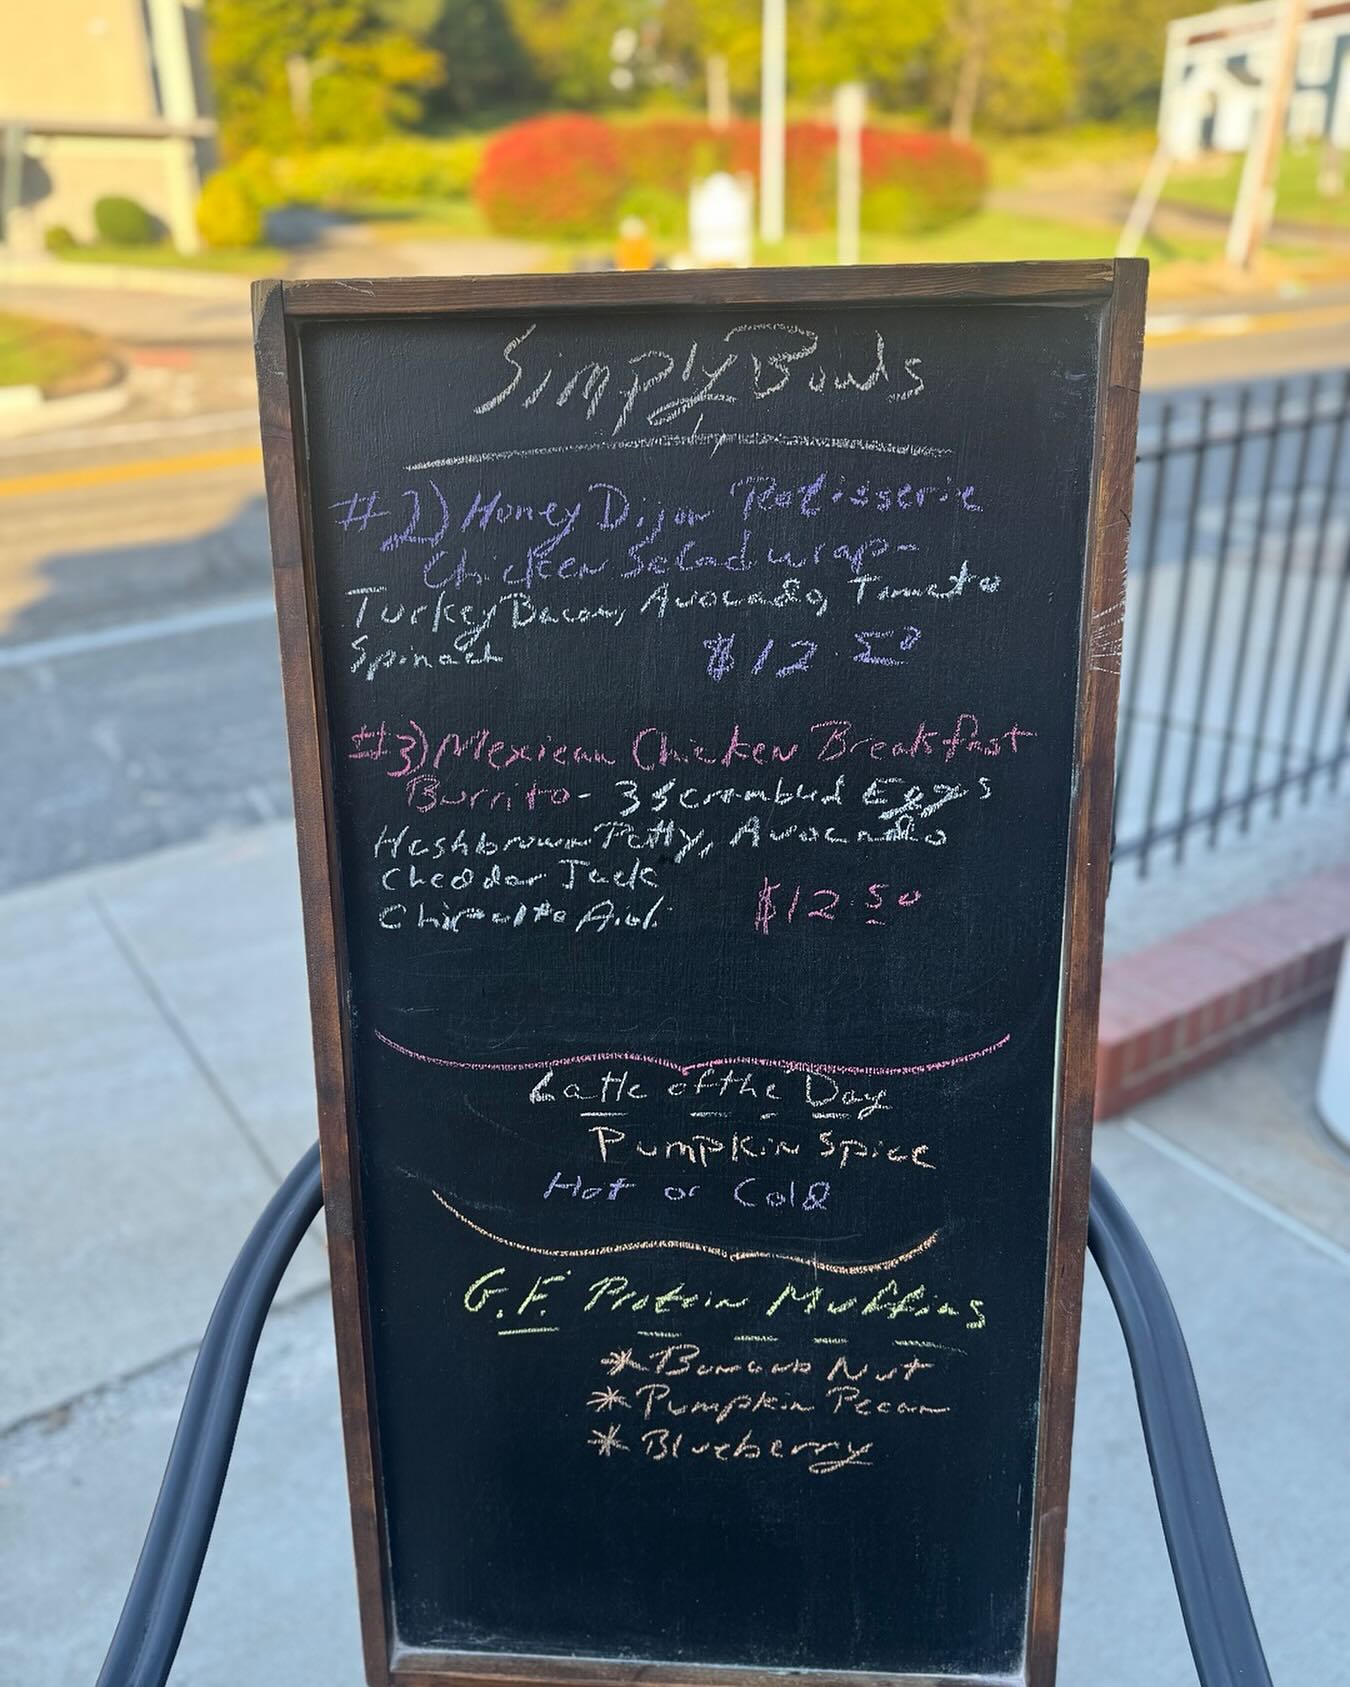 Simply Bowls
#2) Honey Dijon Rotisserie
Chicken Salad wrap-
Turkey Bacon, Avocado, Tomato
Spinach $12.50
#3) Mexican Chicken Breakfast
Burrito- 3 Scrambled Eggs
Hashbrown Patty, Avocado
Cheddar Jack
Chipotle Aioli $12.50
Latte of the Day
Pumpkin Spice
Hot or Cold
G.F. Protein Muffins
* Banana Nut
* Pumpkin Pecan
* Blueberry